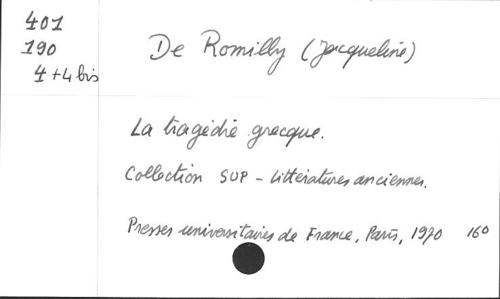 401
190
4+4 bis
De Romilly (Jacqueline)
La tragédie grecque.
Collection SUP - Littératures anciennes.
Presses universitaires de France, Paris, 1970 160